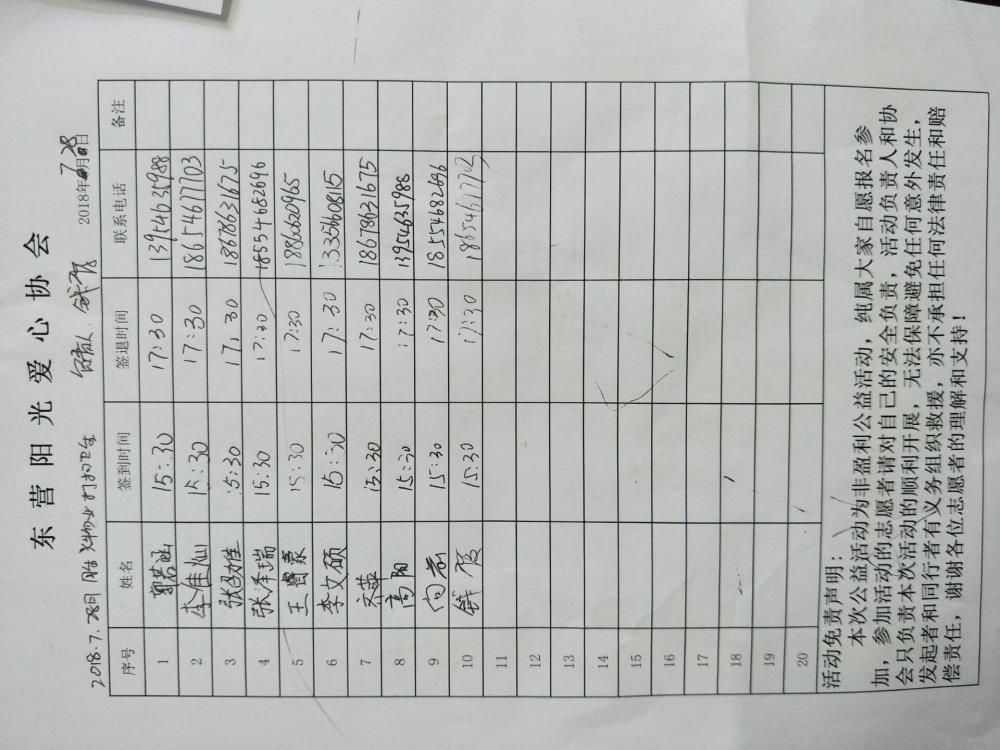 东营阳光爱心协会
2018.7.28日 胜兴物业打扫卫生 负责人: 2018年7月28日
序号 姓名 签到时间 签退时间 联系电话 备注
1 郭若涵 15:30 17:30 13954635988
2 李佳灿 15:30 17:30 18654677703
3 15:30 17:30 18678631675
4 张泽瑞 15:30 17:30 18554682696
5 15:30 17:30
6 李文硕 15:30 17:30 13356608115
7 15:30 17:30 18678631675
8 高阳 15:30 17:30 13954635988
9 15:30 17:30 18554682696
10 15:30 17:30
11
12
13
14
15
16
17
18
19
20
活动免责声明:
本次公益活动为非盈利公益活动,纯属大家自愿报名参
加,参加活动的志愿者请对自己的安全负责,活动负责人和协
会只负责本次活动的顺利开展,无法保障避免任何意外发生,
发起者和同行者有义务组织救援,亦不承担任何法律责任和赔
偿责任,谢谢各位志愿者的理解和支持!